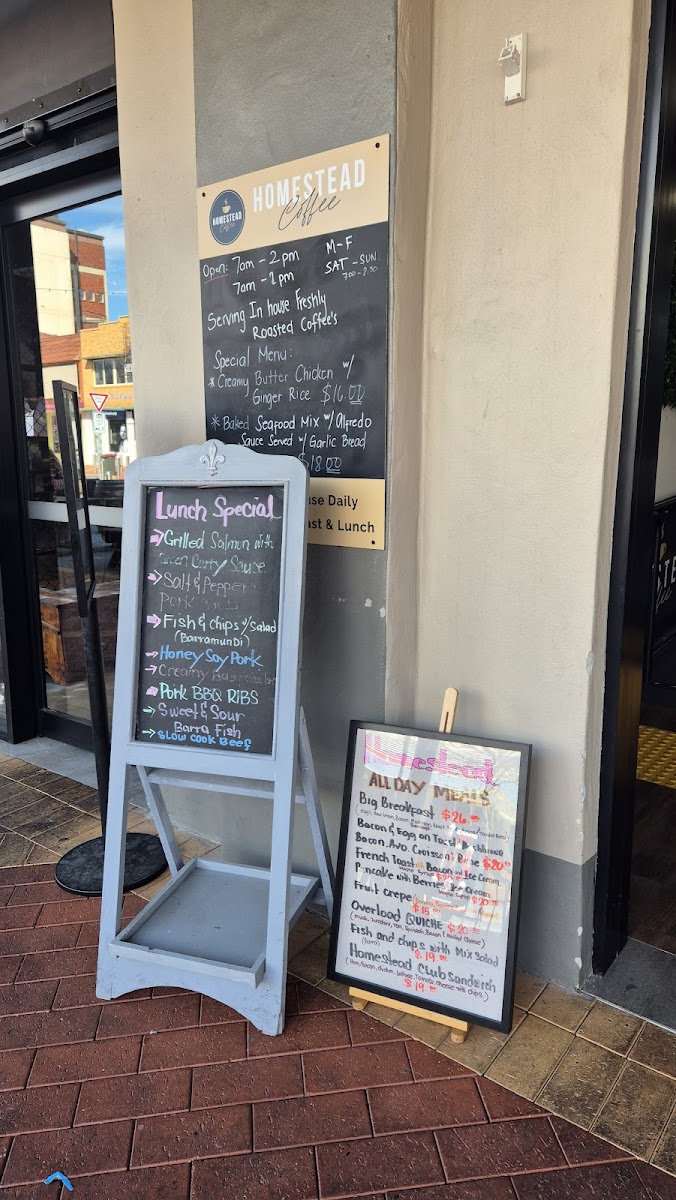 HOMESTEAD
Coffee
HOMESTEAD
Coffee
Open: 7am - 2pm M-F
7am - 1pm SAT - SUN
7:00 - 2:30
Serving In house Freshly
Roasted Coffee's
Special Menu:
* Creamy Butter Chicken w/
Ginger Rice $16.00
* Baked Seafood Mix w/ Alfredo
Sauce Served w/ Garlic Bread
$18.00
use Daily
ast & Lunch
Lunch Special
Grilled Salmon with
Green Curry Sauce
Salt & Pepper
Pork
Fish & chips w/ Salad
(BarramunDi)
Honey Soy Pork
Creamy
Pork BBQ RIBS
Sweet & Sour
Barra Fish
SLOW COOK BeeF
Homestead
ALL DAY MEALS
Big Breakfast $26.00
Bacon & Egg on Toast
Bacon, Avo, Croissant $20.00
French Toast Bacon and Ice Cream
Pancake with Berries, Ice Cream
$20.00
Fruit crepe
$15.00
Overload QUICHE $20.00
Fish and chips with Mix Salad
(Barra) $19.00
Homestead Club Sandwich
(Ham, Bacon, chicken, Lettuce, Tomato, Cheese with chips)
$19.00